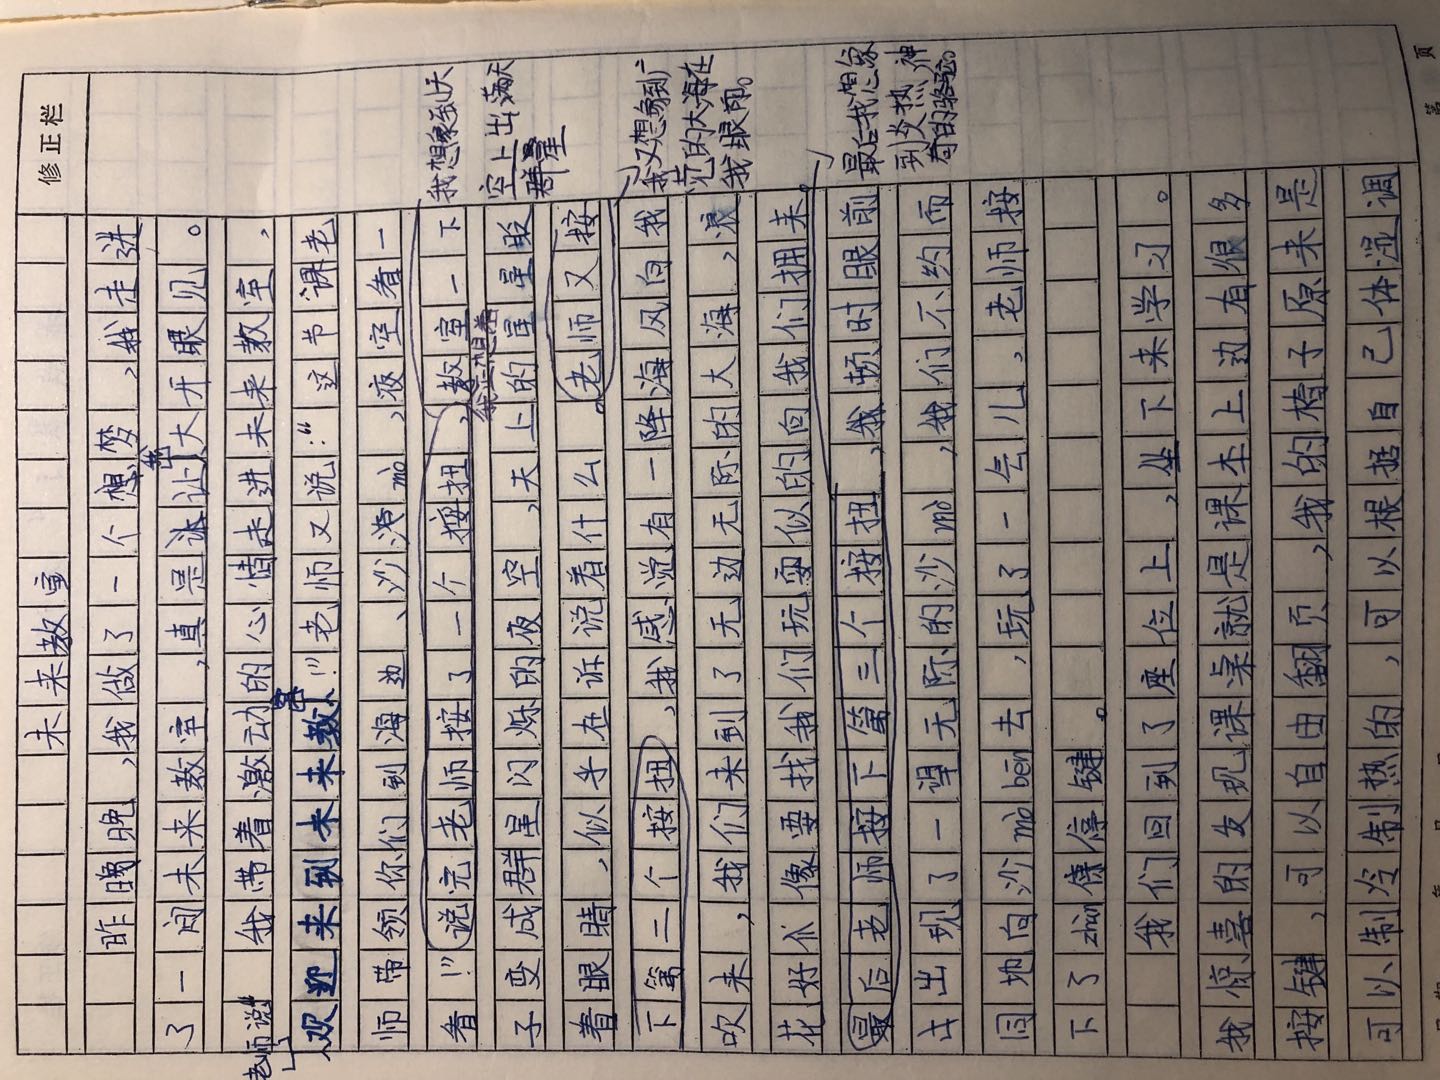 修正栏
未来教室
昨晚，我做了一个想梦，我走进
了一间未来教室，真是让大开眼见。
我带着激动的心情走进未来教室，
老师说“
欢迎来到未来教室！”老师又说：“这节课老
师带领你们到海边、沙漠mò，夜空看一
看！”说完老师按了一个按扭，教室一下
子变成群星闪烁的夜空，天上的星星眨
着眼睛，似乎在诉说着什么。老师又按
下第二个按扭，我感觉有一降海风向我
吹来，我们来到了无边无际的大海，浪
花好像要找我们玩耍似的向我们拥来。
最后老师按下第三个按扭，我顿时眼前
出现了一望无际的沙mò，我们不约而
同地向沙mò bēn去，玩了一会儿，老师按
下了zhàn停键。
我们回到了座位上，坐下来学习。
我惊喜的发现课桌就是课本上边有很多
按键，可以自由翻页，我的椅子原来是
可以制冷制热的，可以根据自己体温调
我想象到天
空上出满天
群星
我又想象到广
范的大海在
我眼雨。
最后我想象
到炎热神
奇的骆驼。
页
第